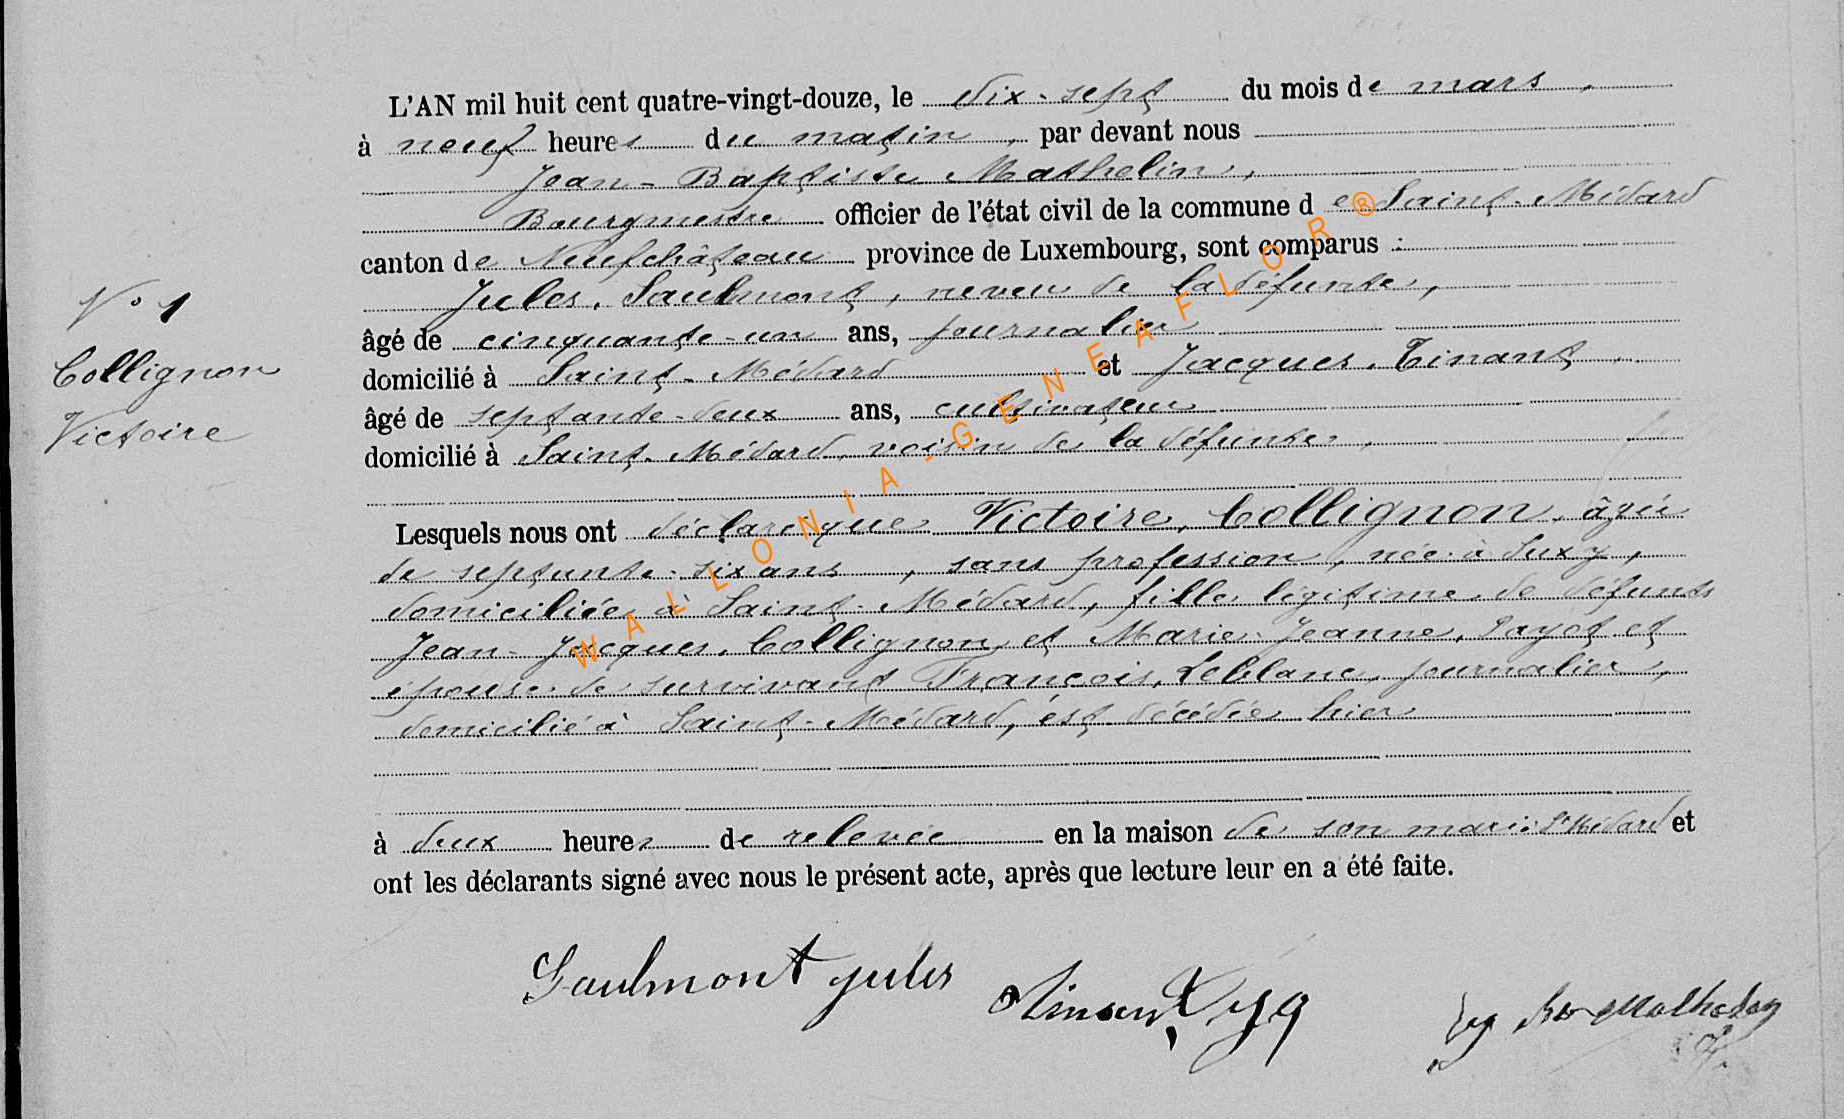 L'AN mil huit cent quatre-vingt-douze, le dix-sept du mois de mars,
à neuf heures du matin, par devant nous
Jean-Baptiste Mathelin,
Bourgmestre officier de l'état civil de la commune de Saint-Médard
canton de Neufchâteau province de Luxembourg, sont comparus :
Jules Saulmont, neveu de la défunte,
N° 1
âgé de cinquante-un ans, journalier
Collignon
domicilié à Saint-Médard et Jacques Tinant
Victoire
âgé de septante-deux ans, cultivateur
domicilié à Saint-Médard, voisin de la défunte,
Lesquels nous ont déclaré que Victoire Collignon, âgée
de septante-six ans, sans profession, née à Suxy,
domiciliée à Saint-Médard, fille légitime de défunts
Jean-Jacques Collignon et Marie-Jeanne Payot et
épouse de survivant François Leblanc, journalier,
domicilié à Saint-Médard, est décédée hier
à deux heures de relevée en la maison de son mari à St Médard et
ont les déclarants signé avec nous le présent acte, après que lecture leur en a été faite.
Saulmont jules
Tinant
WALLONIA-GENEAFLOR®